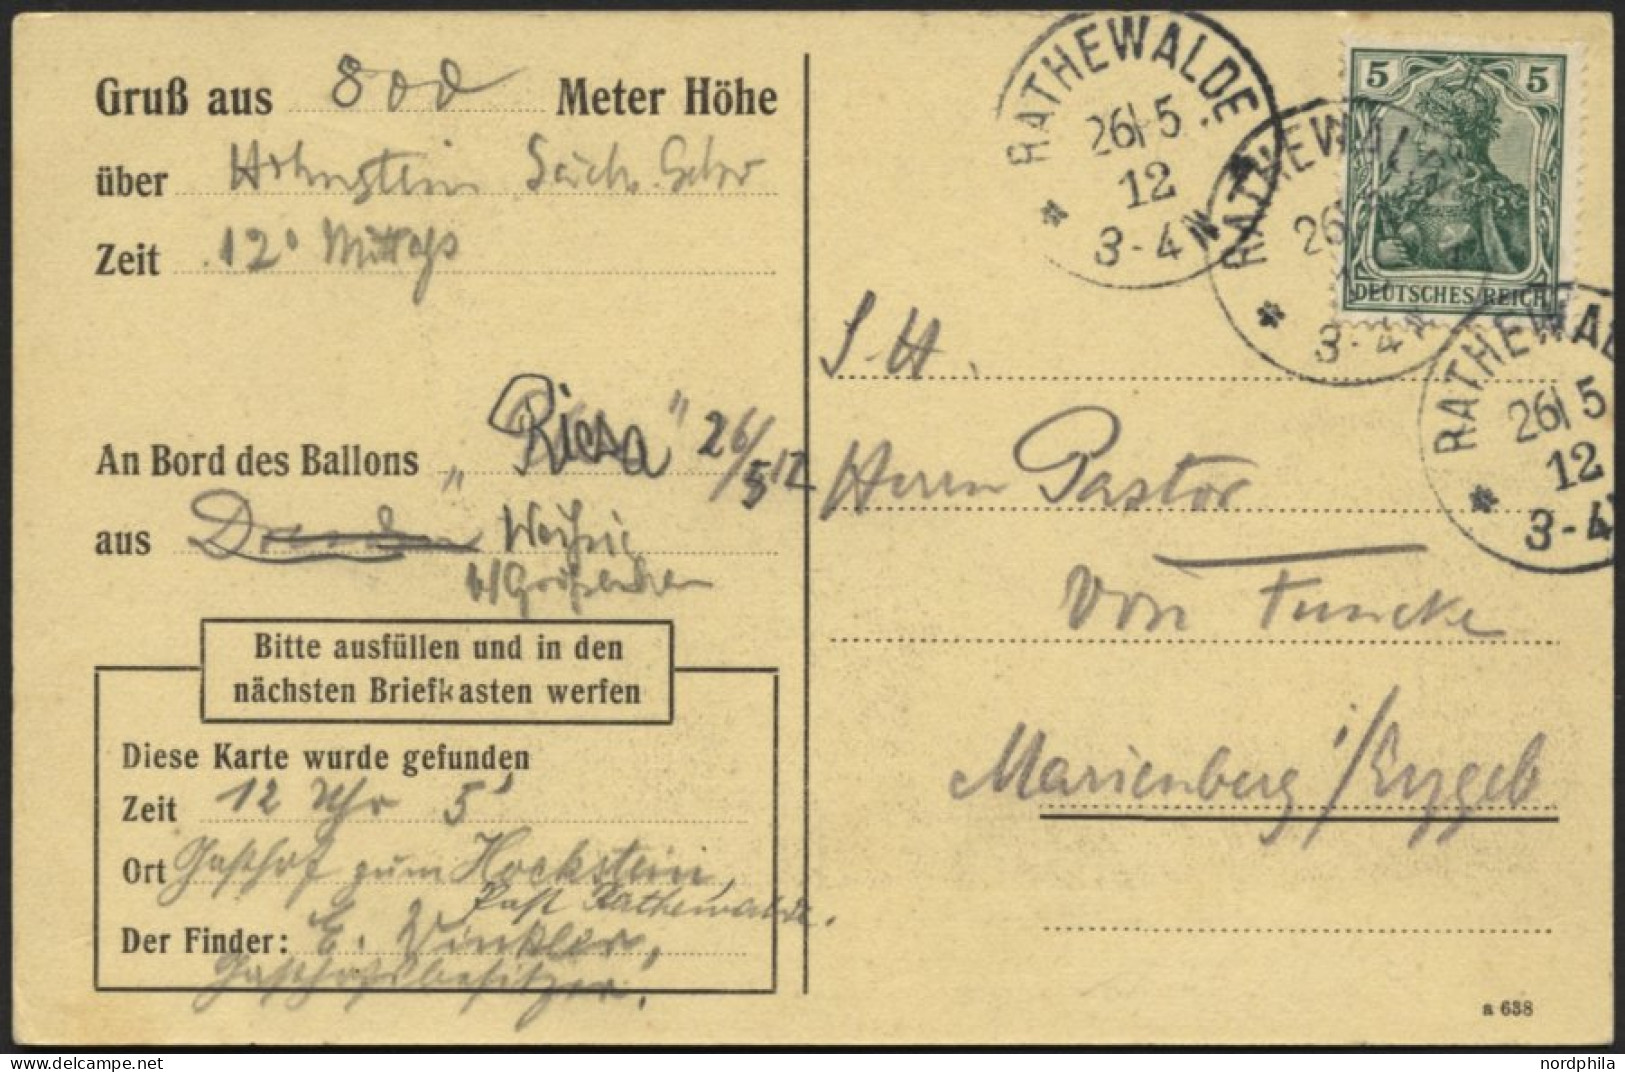 Gruß aus 800 Meter Höhe
über Hohnstein Sächs. Schw
Zeit 12° Mittags
An Bord des Ballons „Riesa" 26/5 12
aus Dresden Weißig
b/Großenhain
Bitte ausfüllen und in den
nächsten Briefkasten werfen
Diese Karte wurde gefunden
Zeit 12 Uhr 5'
Ort Gasthof zum Hockstein,
Post Rathewalde.
Der Finder: E. Winkler,
Gasthofsbesitzer.
RATHEWALDE
26 5
12
3-4N
RATHEWALDE
26
3-4N
5 5
DEUTSCHES REICH
RATHEWAL
26 5
12
3-4N
S. H.
Herrn Pastor
von Funcke
Marienberg i/Erzgeb
a 638
delcampe.net
nordphila